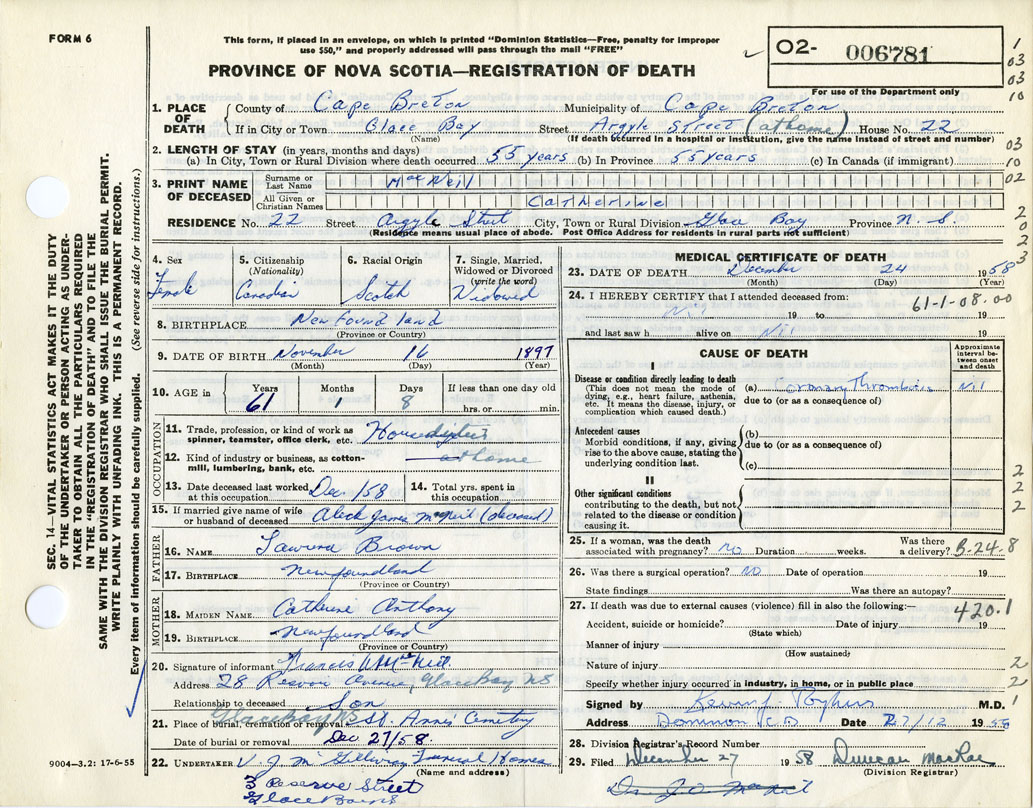 FORM 6
This form, if placed in an envelope, on which is printed "Dominion Statistics—Free, penalty for improper
use $50," and properly addressed will pass through the mail "FREE"
PROVINCE OF NOVA SCOTIA—REGISTRATION OF DEATH
O2- 006781
For use of the Department only
1
03
03
10
1. PLACE OF DEATH
County of Cape Breton Municipality of Cape Breton
If in City or Town Glace Bay Street Argyle Street (at home) House No. 22
(Name) (If death occurred in a hospital or institution, give the name instead of street and number)
2. LENGTH OF STAY (in years, months and days)
03
(a) In City, Town or Rural Division where death occurred 55 years (b) In Province 55 years (c) In Canada (if immigrant)
10
3. PRINT NAME OF DECEASED
Surname or Last Name MacNeil
02
All Given or Christian Names Catherine
RESIDENCE No. 22 Street Argyle Street City, Town or Rural Division Glace Bay Province N.S.
2
0
2
3
(Residence means usual place of abode. Post Office Address for residents in rural parts not sufficient)
4. Sex Female
5. Citizenship (Nationality) Canadian
6. Racial Origin Scotch
7. Single, Married, Widowed or Divorced (write the word) Widowed
8. BIRTHPLACE Newfoundland
(Province or Country)
9. DATE OF BIRTH November 16 1897
(Month) (Day) (Year)
10. AGE in Years 61 Months 1 Days 8 If less than one day old hrs. or min.
OCCUPATION
11. Trade, profession, or kind of work as spinner, teamster, office clerk, etc.
12. Kind of industry or business, as cotton-mill, lumbering, bank, etc. at home
13. Date deceased last worked at this occupation Dec/58
14. Total yrs. spent in this occupation
15. If married give name of wife or husband of deceased Aleck James McNeil (deceased)
FATHER
16. NAME Brown
17. BIRTHPLACE Newfoundland
(Province or Country)
MOTHER
18. MAIDEN NAME Catherine Anthony
19. BIRTHPLACE Newfoundland
(Province or Country)
20. Signature of informant Francis McNeil
Address 28 Avenue, Glace Bay NS
Relationship to deceased Son
21. Place of burial, cremation or removal Glace Bay NS St. Annes Cemetery
Date of burial or removal Dec 27/58.
22. UNDERTAKER V. J. McGillivray Funeral Homes
(Name and address)
3 Reserve Street
Glace Bay NS
MEDICAL CERTIFICATE OF DEATH
23. DATE OF DEATH December 24 1958
(Month) (Day) (Year)
24. I HEREBY CERTIFY that I attended deceased from:
61-1-08.00
Nil 19 to 19
and last saw h alive on Nil 19
CAUSE OF DEATH
Approximate interval between onset and death
I
Disease or condition directly leading to death
(This does not mean the mode of dying, e.g., heart failure, asthenia, etc. It means the disease, injury, or complication which caused death.)
(a) Coronary Thrombosis Nil
due to (or as a consequence of)
Antecedent causes
Morbid conditions, if any, giving rise to the above cause, stating the underlying condition last.
(b)
due to (or as a consequence of)
(c)
II
Other significant conditions
contributing to the death, but not related to the disease or condition causing it.
2
2
2
25. If a woman, was the death associated with pregnancy? No Duration weeks. Was there a delivery?
B-24-8
26. Was there a surgical operation? No Date of operation 19
State findings Was there an autopsy?
27. If death was due to external causes (violence) fill in also the following:—
420.1
Accident, suicide or homicide? Date of injury 19
(State which)
Manner of injury
(How sustained)
Nature of injury
2
Specify whether injury occurred in industry, in home, or in public place
2
Signed by M.D.
1
Address Dominion C.B. Date 27/12 1958
28. Division Registrar's Record Number
29. Filed December 27 1958 Duncan MacRae
(Division Registrar)
9004—3.2: 17-6-55
SEC. 14—VITAL STATISTICS ACT MAKES IT THE DUTY
OF THE UNDERTAKER OR PERSON ACTING AS UNDER-
TAKER TO OBTAIN ALL THE PARTICULARS REQUIRED
IN THE "REGISTRATION OF DEATH" AND TO FILE THE
SAME WITH THE DIVISION REGISTRAR WHO SHALL ISSUE THE BURIAL PERMIT.
WRITE PLAINLY WITH UNFADING INK. THIS IS A PERMANENT RECORD.
Every item of information should be carefully supplied. (See reverse side for instructions.)